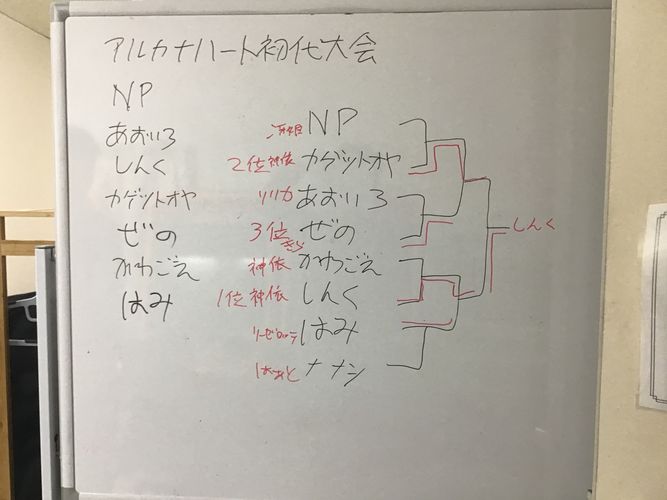 アルカナハート初代大会
NP
あおいろ
しんく
カゲットオヤ
ぜの
かわごえ
はみ
NP
2位 神依 カゲットオヤ
リリカ あおいろ
3位 きら ぜの
神依 かわごえ
1位 神依 しんく
リーゼロッテ はみ
はぁと ナナシ
しんく